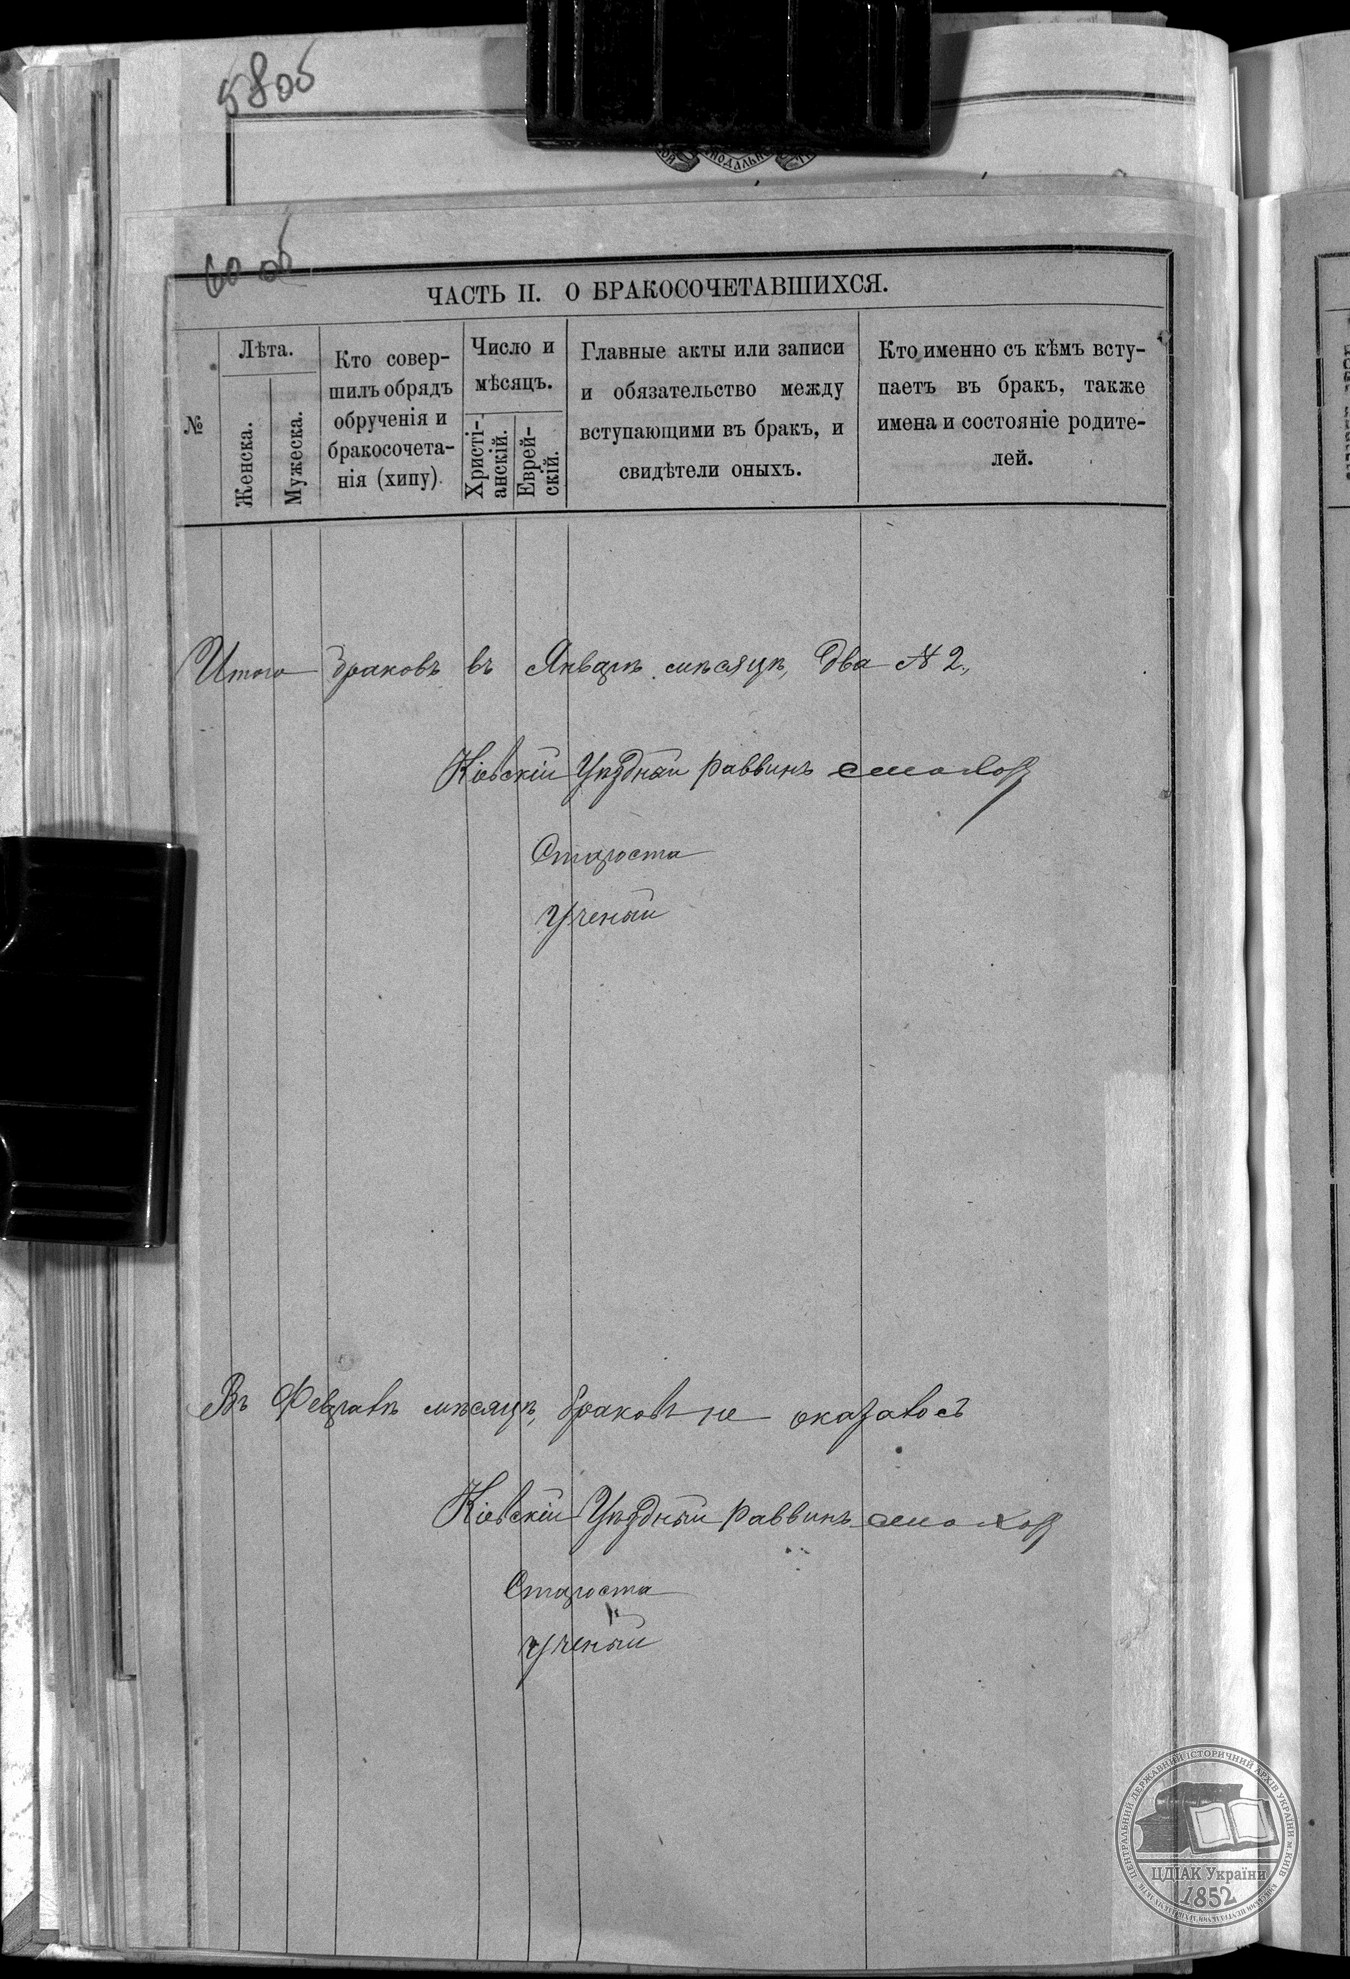 58об
60 об
ЧАСТЬ II. О БРАКОСОЧЕТАВШИХСЯ.
№
Лѣта.
Женска.
Мужеска.
Кто совер-
шилъ обрядъ
обрученія и
бракосочета-
нія (хипу).
Число и
мѣсяцъ.
Христі-
анскій.
Еврей-
скій.
Главные акты или записи
и обязательство между
вступающими въ бракъ, и
свидѣтели оныхъ.
Кто именно съ кѣмъ всту-
паетъ въ бракъ, также
имена и состояніе родите-
лей.
Итого браковъ въ Январѣ мѣсяцѣ, два N 2.,
Кіевскій Уѣздный раввинъ
Староста
Ученый
Въ Февралѣ мѣсяцѣ, браковъ не оказалось
Кіевскій Уѣздный раввинъ
Староста
Ученый
ЦЕНТРАЛЬНИЙ ДЕРЖАВНИЙ ІСТОРИЧНИЙ АРХІВ УКРАЇНИ м. КИЇВ
ЦДІАК України
1852